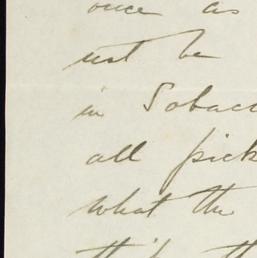 once as
not be
in Tobacc
all pick
what the